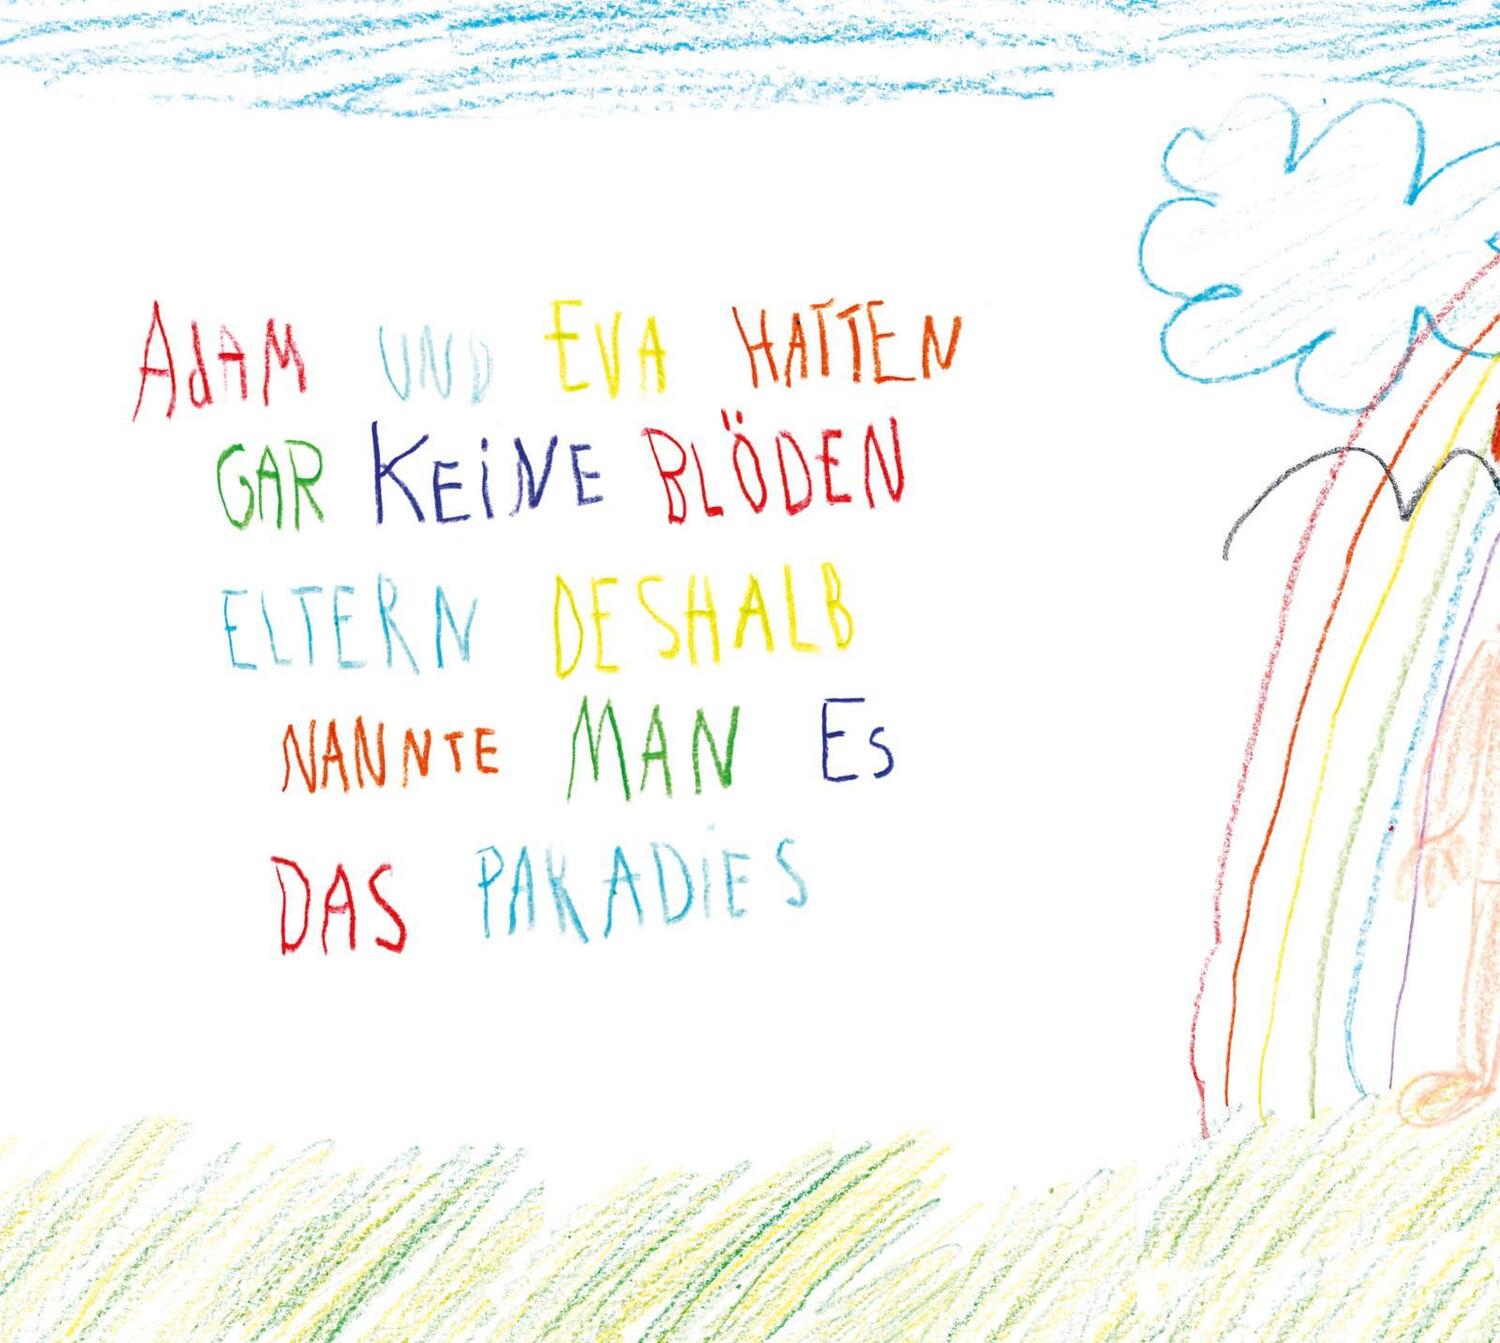 ADAM UND EVA HATTEN
GAR KEINE BLÖDEN
ELTERN DESHALB
NANNTE MAN ES
DAS PARADIES